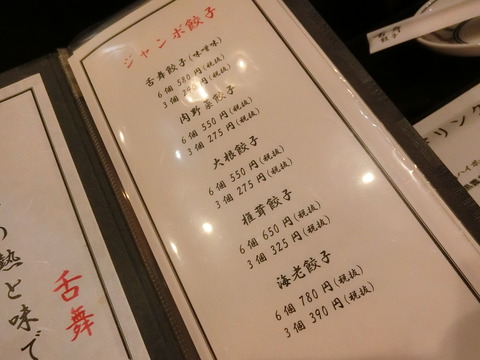 ジャンボ餃子
舌舞餃子(味噌味)
6個 580円(税抜)
3個 290円(税抜)
肉野菜餃子
6個 550円(税抜)
3個 275円(税抜)
大根餃子
6個 550円(税抜)
3個 275円(税抜)
椎茸餃子
6個 650円(税抜)
3個 325円(税抜)
海老餃子
6個 780円(税抜)
3個 390円(税抜)
熱と味で
舌舞
餃子
リンク